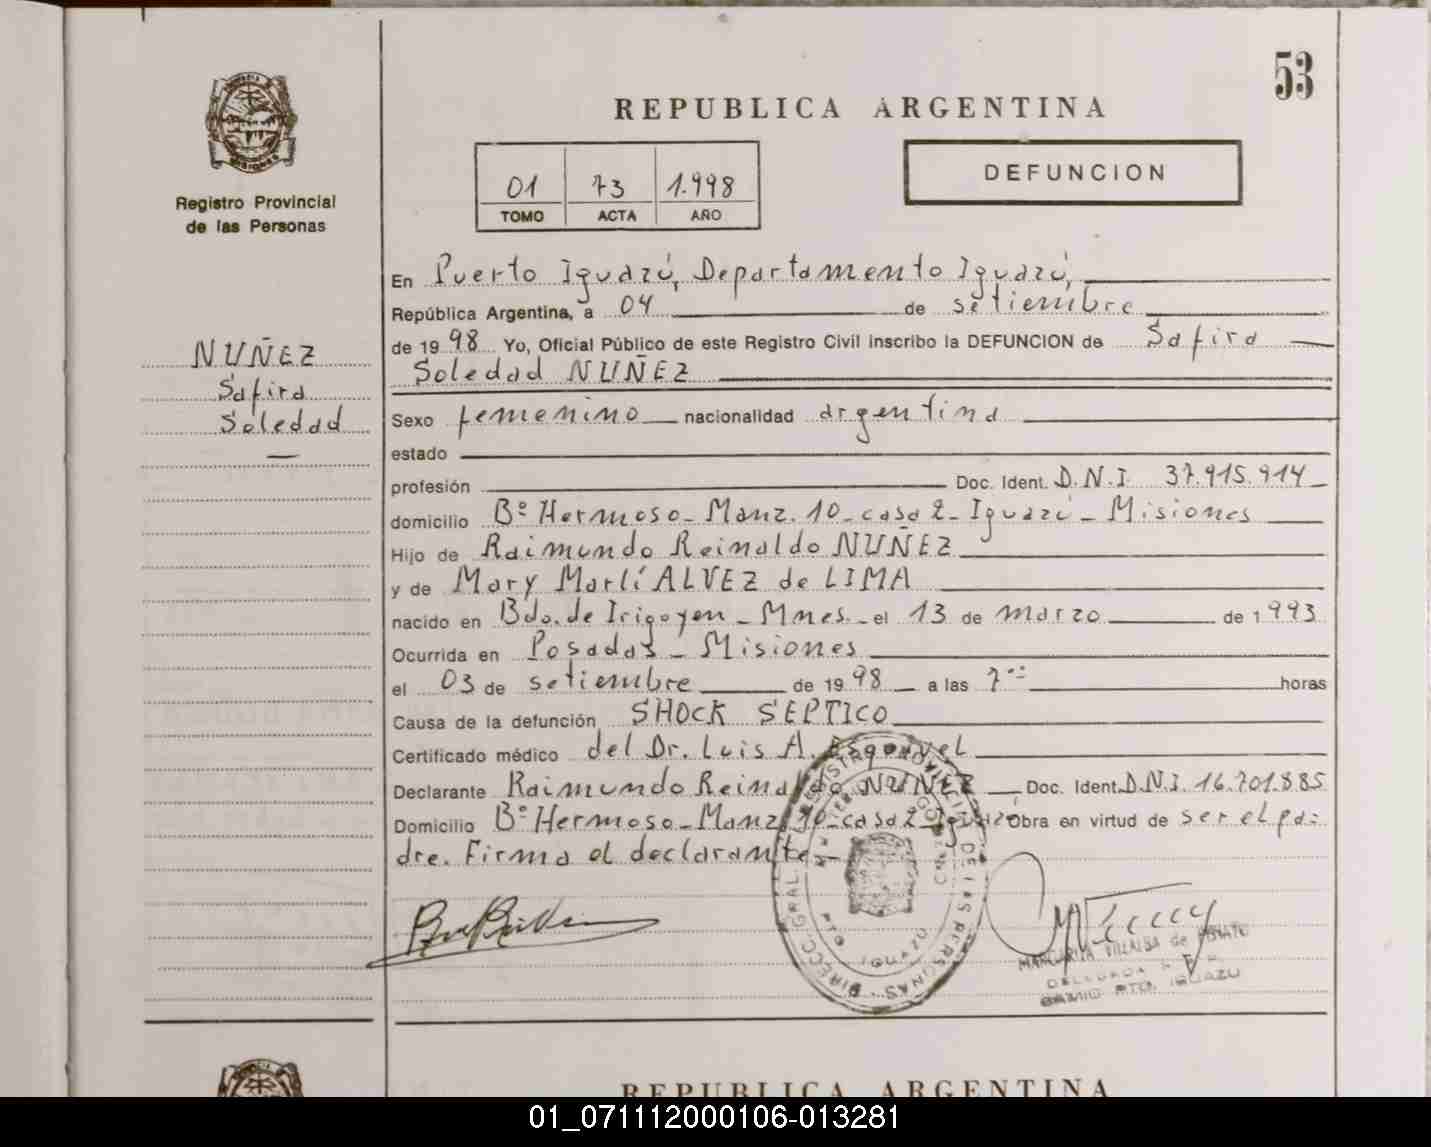 53
REPUBLICA ARGENTINA
MISIONES
Registro Provincial
de las Personas
01 73 1.998
TOMO ACTA AÑO
DEFUNCION
En Puerto Iguazú, Departamento Iguazú,
República Argentina, a 04 de setiembre
de 1998 Yo, Oficial Público de este Registro Civil inscribo la DEFUNCION de Safira
Soledad NUÑEZ
NUÑEZ
Safira
Soledad
Sexo femenino nacionalidad argentina
estado
profesión Doc. Ident. D.N.I. 37.915.914
domicilio Bº Hermoso - Manz. 10 - casa 2 - Iguazú - Misiones
Hijo de Raimundo Reinaldo NUÑEZ
y de Mary Marlí ALVEZ de LIMA
nacido en Bdo. de Irigoyen - Mnes. - el 13 de marzo de 1993
Ocurrida en Posadas - Misiones
el 03 de setiembre de 1998 a las 7 horas
Causa de la defunción SHOCK SEPTICO
Certificado médico del Dr. Luis A. Esquivel
Declarante Raimundo Reinaldo NUÑEZ Doc. Ident. D.N.I. 16.701.885
Domicilio Bº Hermoso - Manz. 10 - casa 2 - Iguazú Obra en virtud de ser el pa-
dre. Firma el declarante
DIRECC. GRAL. REGISTRO PROVINCIAL DE LAS PERSONAS
PTO IGUAZU
MARGARITA VILLALBA de
DELEGADA
PTO. IGUAZU
REPUBLICA ARGENTINA
01_071112000106-013281